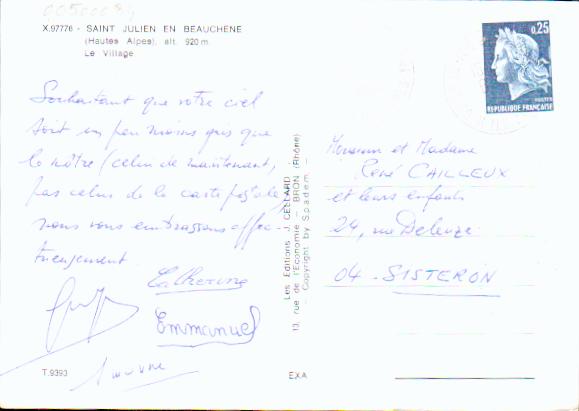 X.97776 - SAINT JULIEN EN BEAUCHENE
(Hautes Alpes), alt. 920 m.
Le Village
0,25
POSTES
REPUBLIQUE FRANÇAISE
Souhaitant que votre ciel
soit un peu moins gris que
le nôtre (celui de maintenant,
pas celui de la carte postale)
nous vous embrassons affec-
tueusement
Catherine
Emmanuel
T.9393
Les Editions J. CELLARD
13, rue de l'Economie - BRON (Rhône)
Copyright by S.p.a.d.e.m.
EXA
Monsieur et Madame
René CAILLEUX
et leurs enfants
24, rue Deleuze
04 - SISTERON